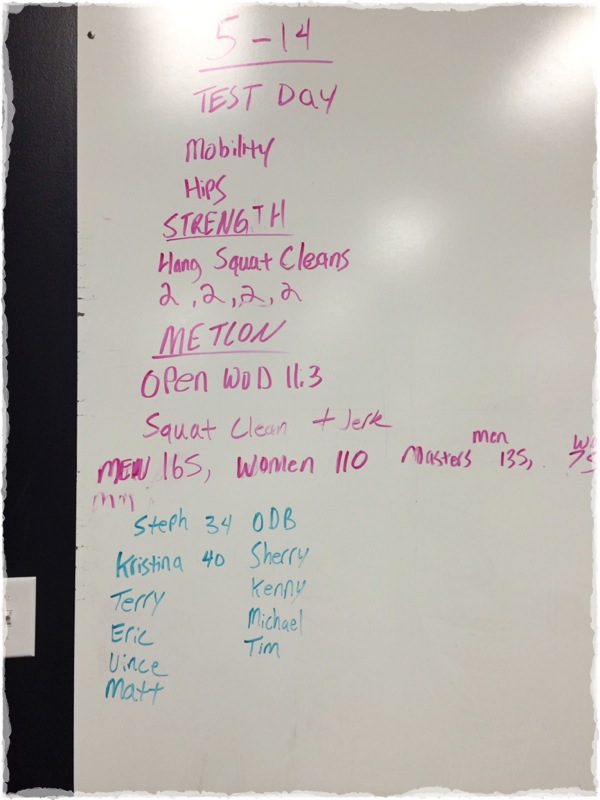 5-14
TEST Day
Mobility
Hips
STRENGTH
Hang Squat Cleans
2, 2, 2, 2
METCON
Open WOD 11.3
Squat Clean + Jerk
MEN 165, Women 110 Masters men 135, 75
Steph 34 ODB
Kristina 40 Sherry
Terry Kenny
Eric Michael
Vince Tim
Matt